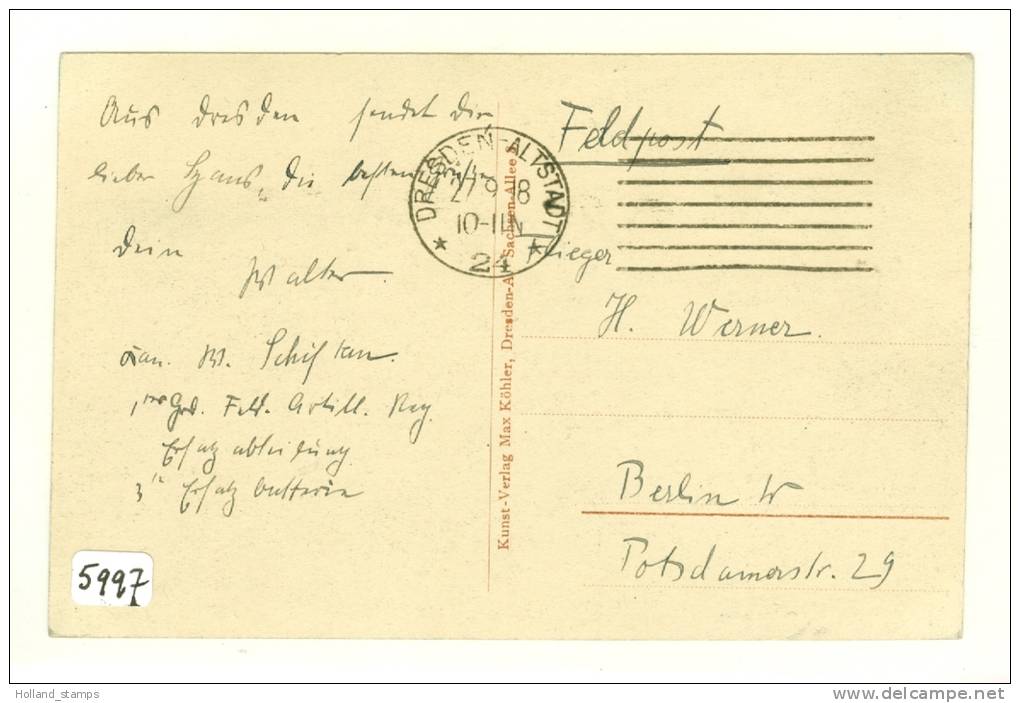 Aus Dresden sendet Dir
lieber Hans, die besten Grüße
Dein
Walter
Kan. W. Schiftan.
Ers. Feld. Artill. Reg.
Ersatz abteilung
3te Ersatz batterie
Feldpost
DRESDEN-ALTSTADT
27 9 18
10-11 N
* 24 *
Flieger
H. Werner.
Berlin W
Potsdamerstr. 29
Kunst-Verlag Max Köhler, Dresden-A., Sachsen-Allee
5997
Holland_stamps
www.delcampe.net